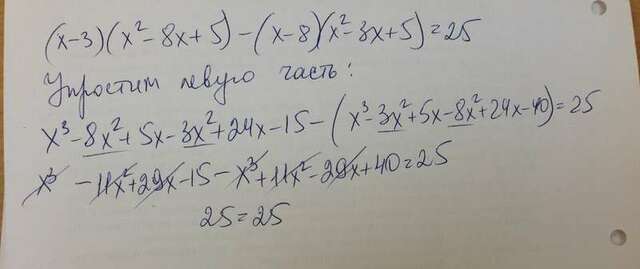 (x-3)(x²-8x+5)-(x-8)(x²-3x+5)=25
Упростим левую часть:
x³-8x²+5x-3x²+24x-15-(x³-3x²+5x-8x²+24x-40)=25
x³-11x²+29x-15-x³+11x²-29x+40=25
25=25